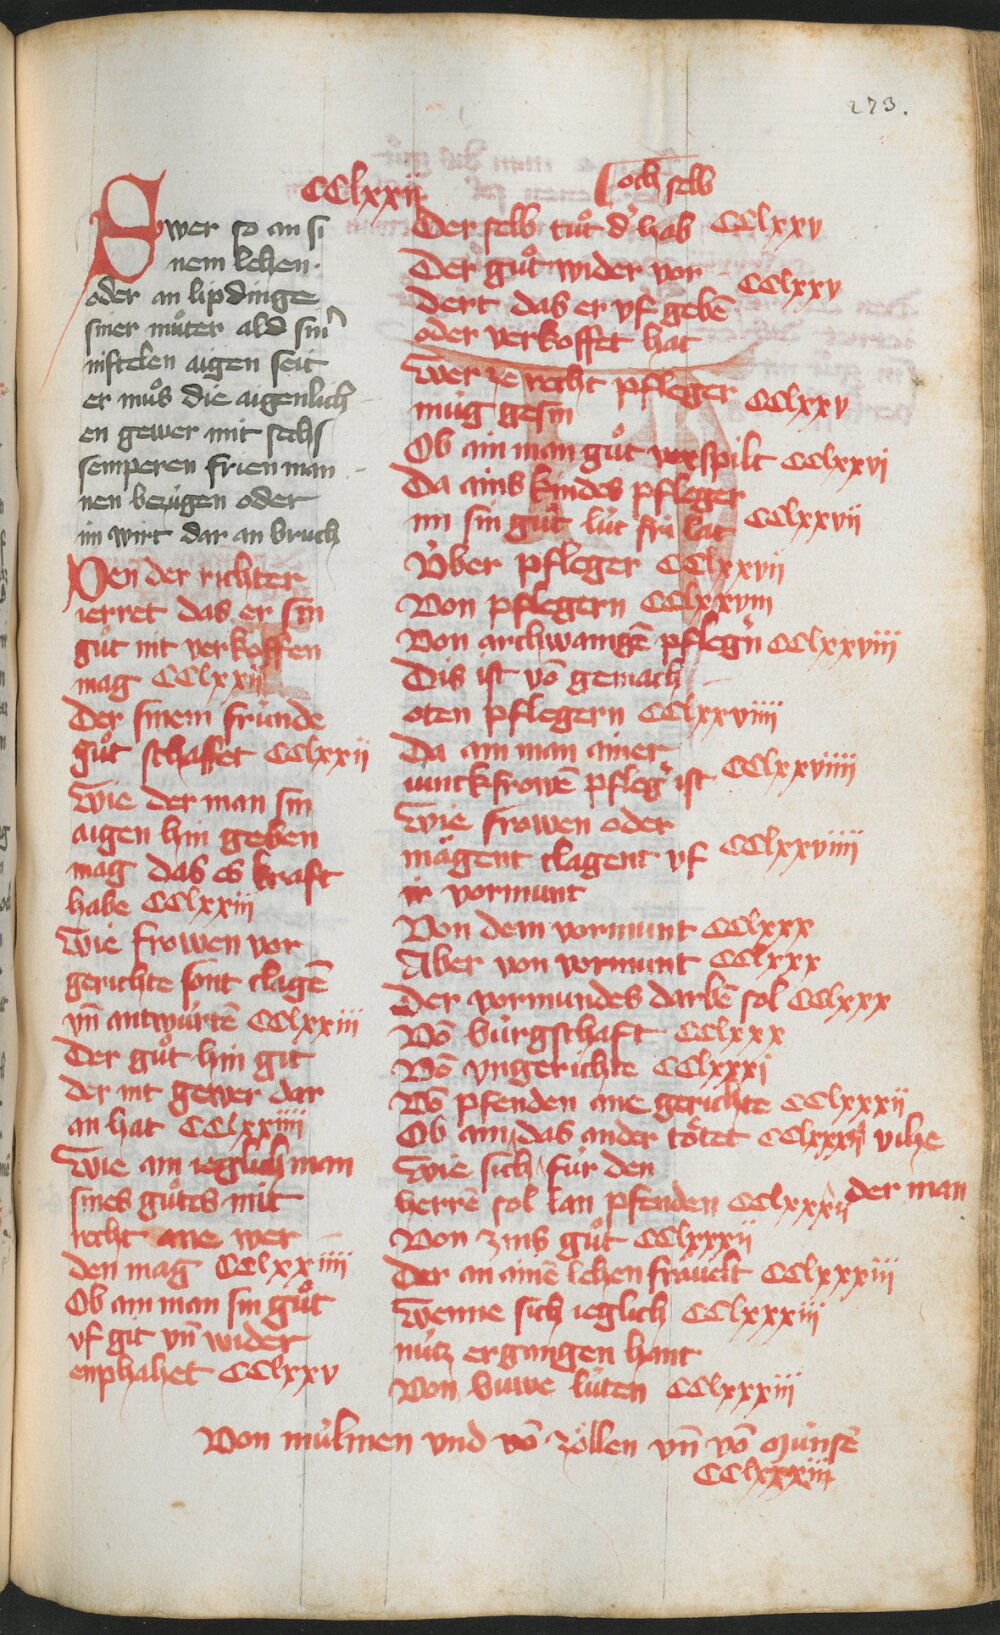 273.
CClxxij
Swer so an si
nem lehen.
oder an lipdinge
siner muͦter ald sinͥ
niftelen aigen seit
er muͦs die aigenlich
en gewer mit sechs
semperen frien man
nen bezúgen oder
im wirt dar an bruch
Den der richter
ierret das er sin
guͦt nit verkoffen
mag CClxxij
Der sinem frúnde
guͦt schaffet CClxxij
Wie der man sin
aigen hin geben
mag das es kraft
habe CClxxiij
Wie frowen vor
gerichte sont clagē
vn̄ antwúrtē CClxxiij
Der guͦt hin git
der nit gewer dar
an hat CClxxiiij
Wie ain ieglich man
sines guͦtes mit
recht ane wer
den mag CClxxiiij
Ob ain man sin guͦt
vf git vn̄ wider
enphahet CClxxv
och selb
Der selb tuͦt dˢ hab CClxxv
Der guͦt wider vor
dert das er vf gebē CClxxv
oder verkoffet hat
Wer ze recht pfleger
múg gesin CClxxv
Ob ain man guͦt verspilt CClxxvi
Da ains kindes pfleger
im sin guͦt lút fri lat CClxxvij
Vͥber pfleger CClxxvij
Von pflegern CClxxviij
Von archwanigē pflegˢn CClxxviij
Dis ist vō gemach
oten pflegern CClxxviiij
Da ain man ainer
iunckfrowē pflegˢ ist CClxxviiij
Wie frowen oder
maͤgent clagent vf CClxxviiij
ir vormunt
Von dem vormunt CClxxx
Aber von vormunt CClxxx
Der vormundes darbē sol CClxxx
Vō búrgschaft CClxxx
Vō vngerichte CClxxxj
Vō pfenden ane gerichte CClxxxij
Ob ain das ander toͤtet CClxxxij vihe
Wie sich fúr den
herrē sol lan pfenden CClxxxij der man
Von zins guͦt CClxxxij
Der an ainē lehen fraͤuelt CClxxxiij
Wenne sich ieglich CClxxxiij
nútz ergangen hant
Von buwe lúten CClxxxiij
Von múlinen vnd vō zöllen vn̄ vō múnsē
CClxxxiij